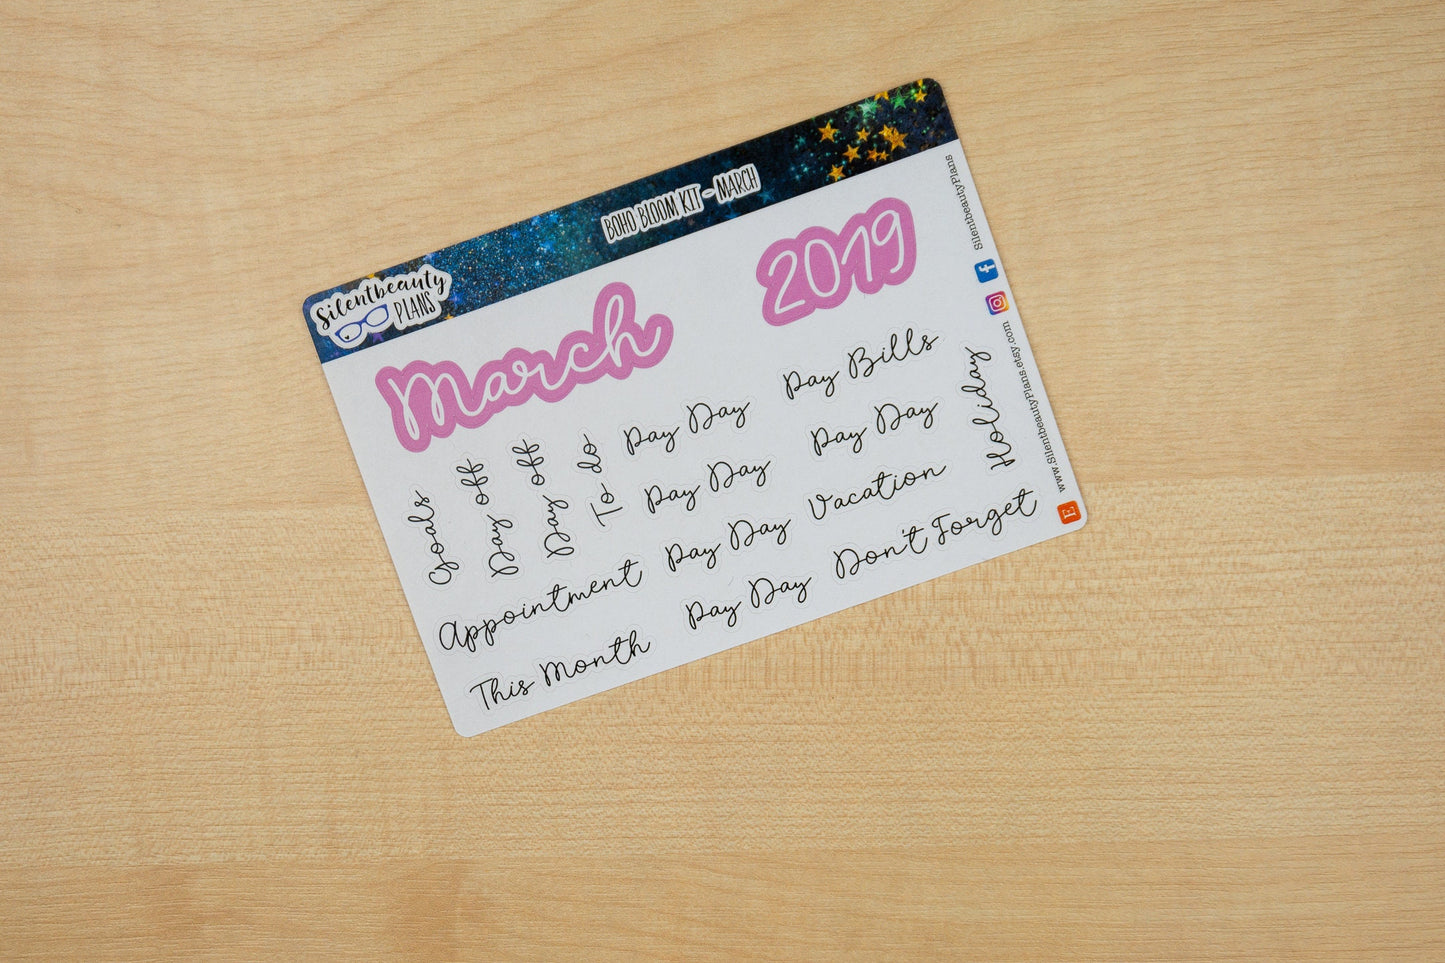 Silentbeauty
PLANS
BOHO BLOOM KIT - MARCH
March
2019
Goals
Day off
Day off
To do
Pay Day
Pay Bills
Pay Day
Pay Day
Pay Day
Vacation
Holiday
Appointment
Pay Day
Don't Forget
This Month
SilentbeautyPlans
www.SilentbeautyPlans.etsy.com
f
E